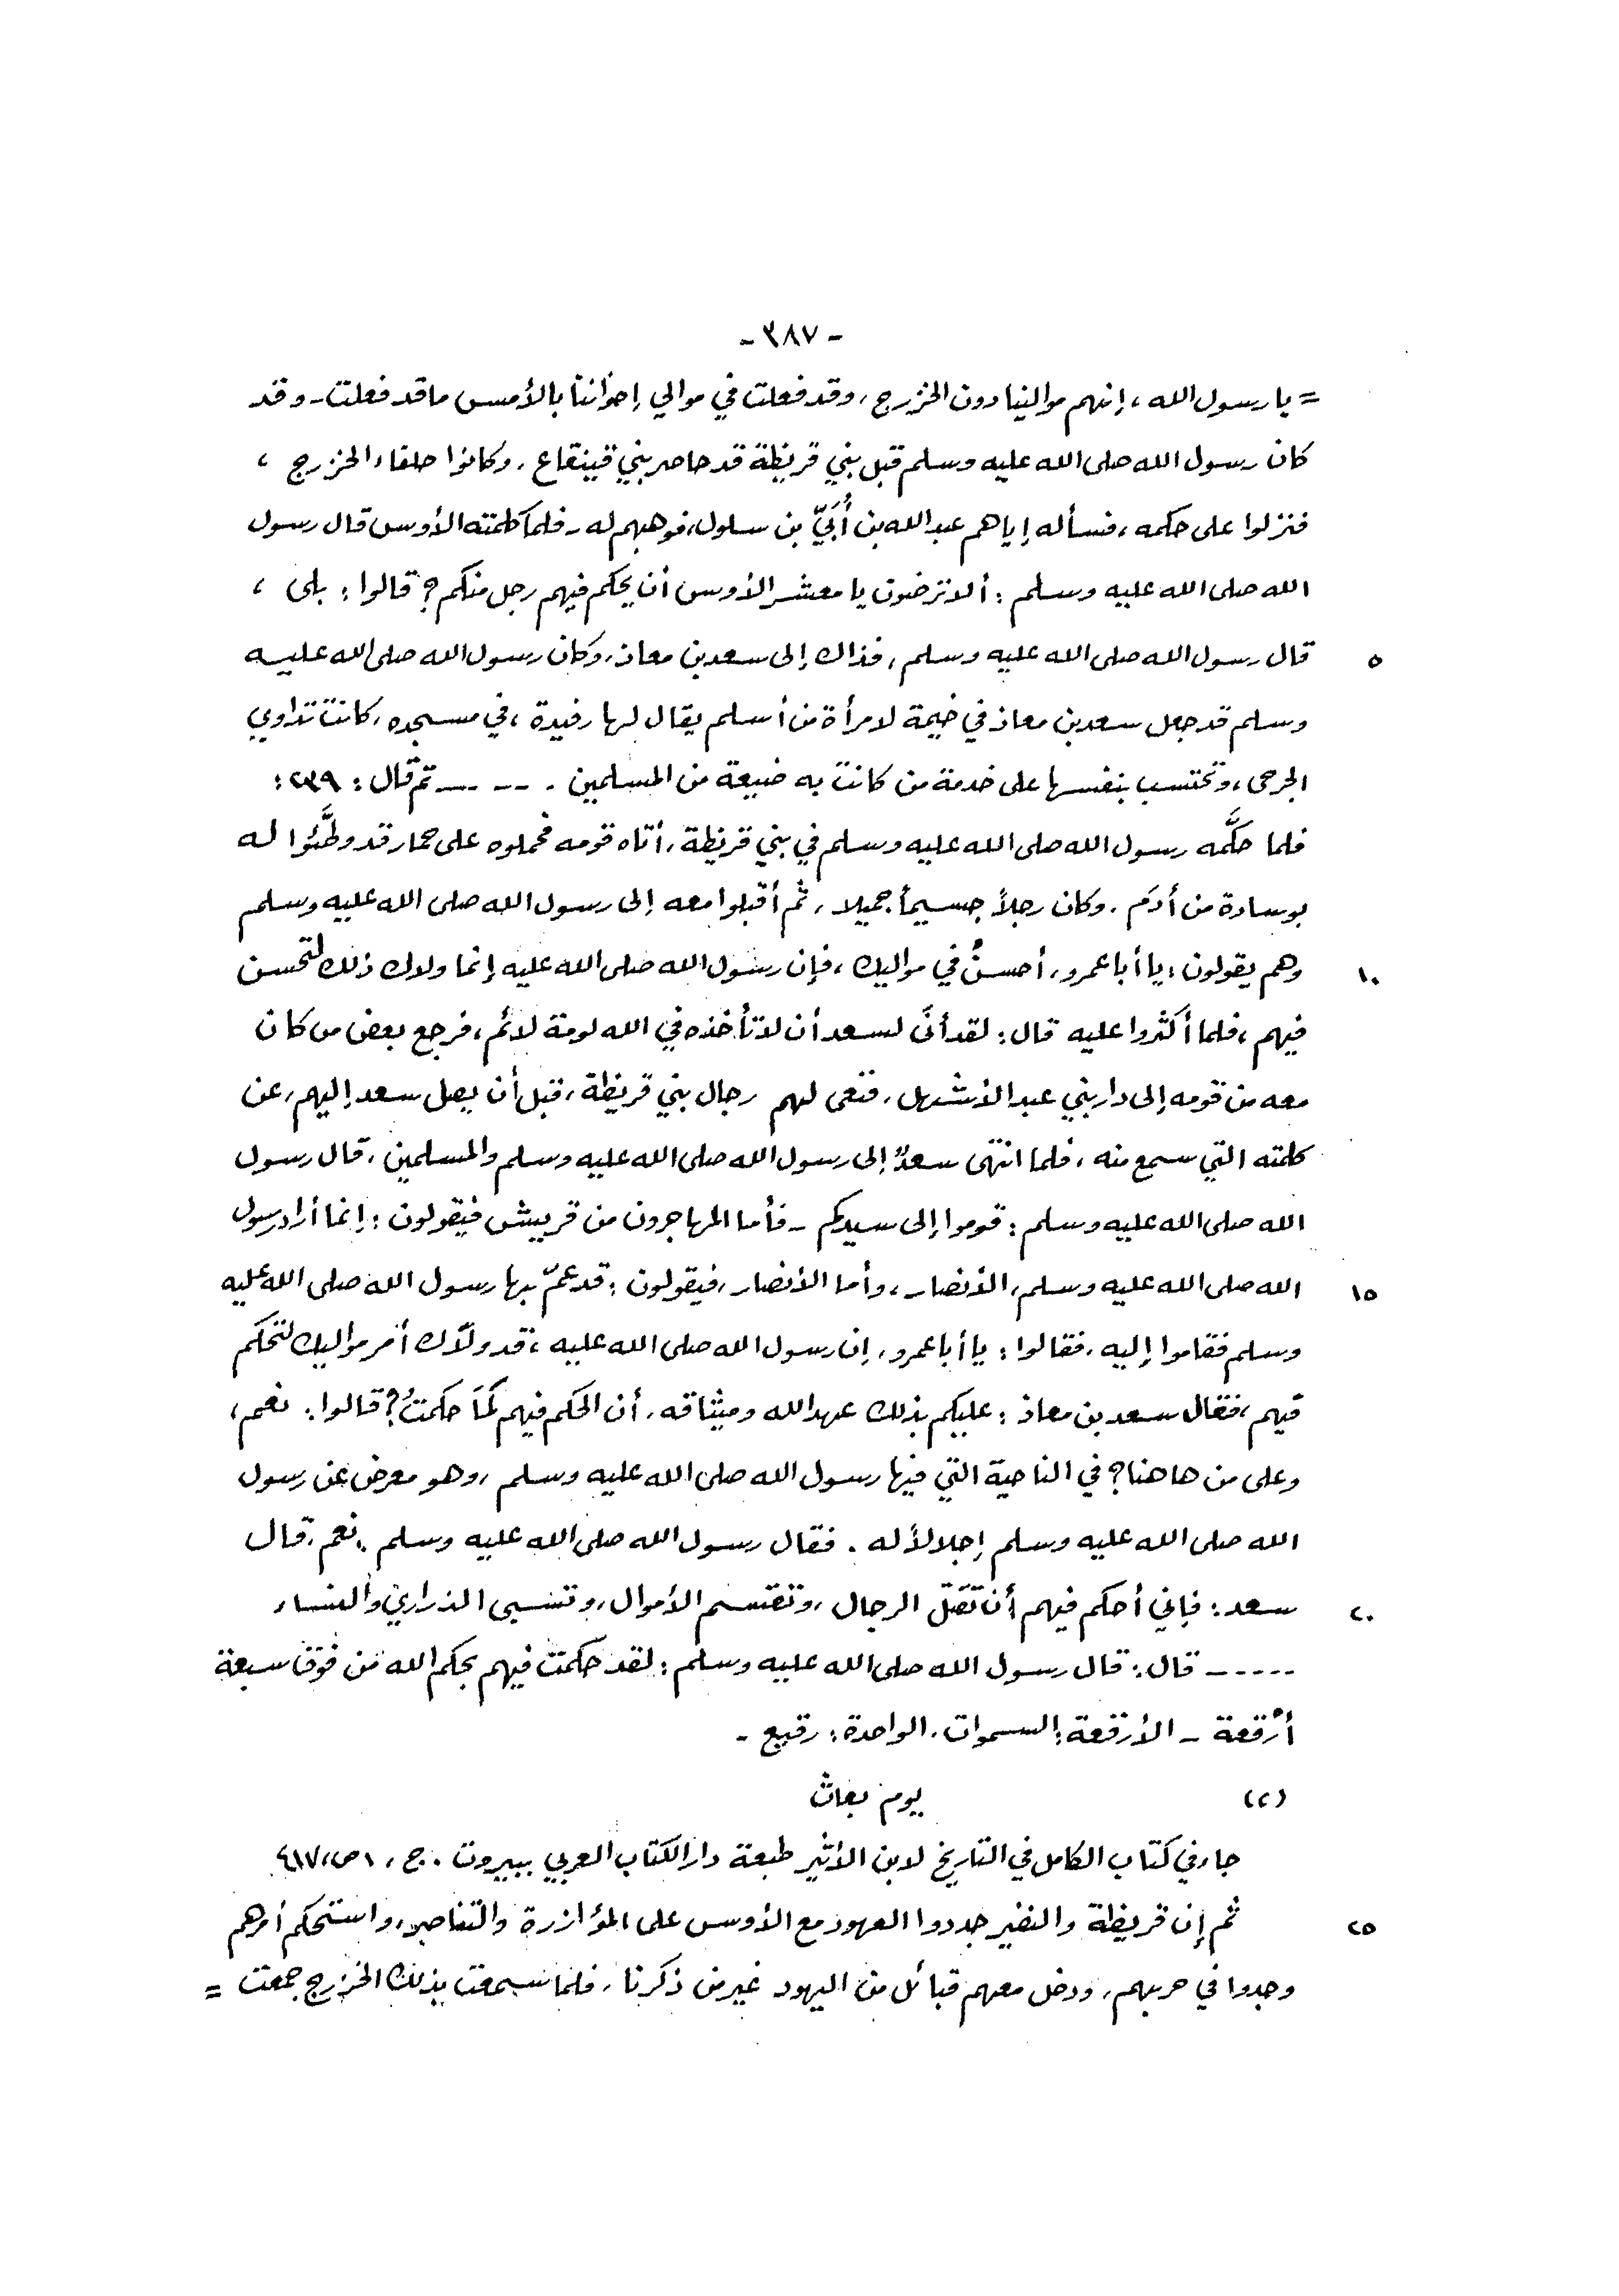 - ٣٨٧ -
= يا رسول الله ، إنهم موالينا دون الخزرج ، وقد فعلت في موالي إخواننا بالأمس ما قد فعلت - وقد
كان رسول الله صلى الله عليه وسلم قبل بني قريظة قد حاصر بني قينقاع ، وكانوا حلفاء الخزرج ،
فنزلوا على حكمه ، فسأله إياهم عبد الله بن أُبَيّ بن سلول ، فوهبهم له - فلما كلمته الأوس قال رسول
الله صلى الله عليه وسلم : ألا ترضون يا معشر الأوس أن يحكم فيهم رجل منكم ؟ قالوا : بلى ،
٥ قال رسول الله صلى الله عليه وسلم ، فذاك إلى سعد بن معاذ ، وكان رسول الله صلى الله عليه
وسلم قد جعل سعد بن معاذ في خيمة لامرأة من أسلم يقال لها رفيدة ، في مسجده ، كانت تداوي
الجرحى ، وتحتسب بنفسها على خدمة من كانت به ضيعة من المسلمين . ----- ثم قال : ٢٣٩ :
فلما حكَّمه رسول الله صلى الله عليه وسلم في بني قريظة ، أتاه قومه فحملوه على حمار قد وطَّئوا له
بوسادة من أدَم . وكان رجلاً جسيمأ جميلا ، ثم أقبلوا معه إلى رسول الله صلى الله عليه وسلم
١٠ وهم يقولون : يا أبا عمرو ، أحسنْ في مواليك ، فإن رسول الله صلى الله عليه إنما ولاك ذلك لتحسن
فيهم ، فلما أكثروا عليه قال : لقد أنَى لسعد أن لا تأخذه في الله لومة لائم ، فرجع بعض من كان
معه من قومه إلى دار بني عبد الأشهل ، فنعى لهم رجال بني قريظة ، قبل أن يصل سعد إليهم ، عن
كلمته التي سمع منه ، فلما انتهى سعدٌ إلى رسول الله صلى الله عليه وسلم والمسلمين ، قال رسول
الله صلى الله عليه وسلم : قوموا إلى سيدكم - فأما المهاجرون من قريش فيقولون : إنما أراد رسول
١٥ الله صلى الله عليه وسلم ، الأنصار ، وأما الأنصار ، فيقولون : قد عمّ بها رسول الله صلى الله عليه
وسلم فقاموا إليه ، فقالوا : يا أبا عمرو ، إن رسول الله صلى الله عليه ، قد ولّاك أمر مواليك لتحكم
فيهم ، فقال سعد بن معاذ : عليكم بذلك عهد الله وميثاقه ، أن الحكم فيهم لَمَا حكمتُ ؟ قالوا : نعم ،
وعلى من هاهنا ؟ في الناحية التي فيها رسول الله صلى الله عليه وسلم ، وهو معرض عن رسول
الله صلى الله عليه وسلم إجلالاً له . فقال رسول الله صلى الله عليه وسلم : نعم . قال
٢٠ سعد : فإني أحكم فيهم أن تقتل الرجال ، وتقتسم الأموال ، وتسبى الذراري والنساء
----- قال : قال رسول الله صلى الله عليه وسلم : لقد حكمت فيهم بحكم الله من فوق سبعة
أرْقعة - الأرقعة : السموات ، الواحدة : رقيع -
(٢) يوم بعاث
جاء في كتاب الكامل في التاريخ لابن الأثير طبعة دار الكتاب العربي ببيروت . ج ، ١ ص، ٤١٧
٢٥ ثم إن قريظة والنضير جددوا العهود مع الأوس على المؤازرة والتناصر ، واستحكم أمرهم
وجدوا في حربهم ، ودخل معهم قبائل من اليهود غير من ذكرنا ، فلما سمعت بذلك الخزرج جمعت =